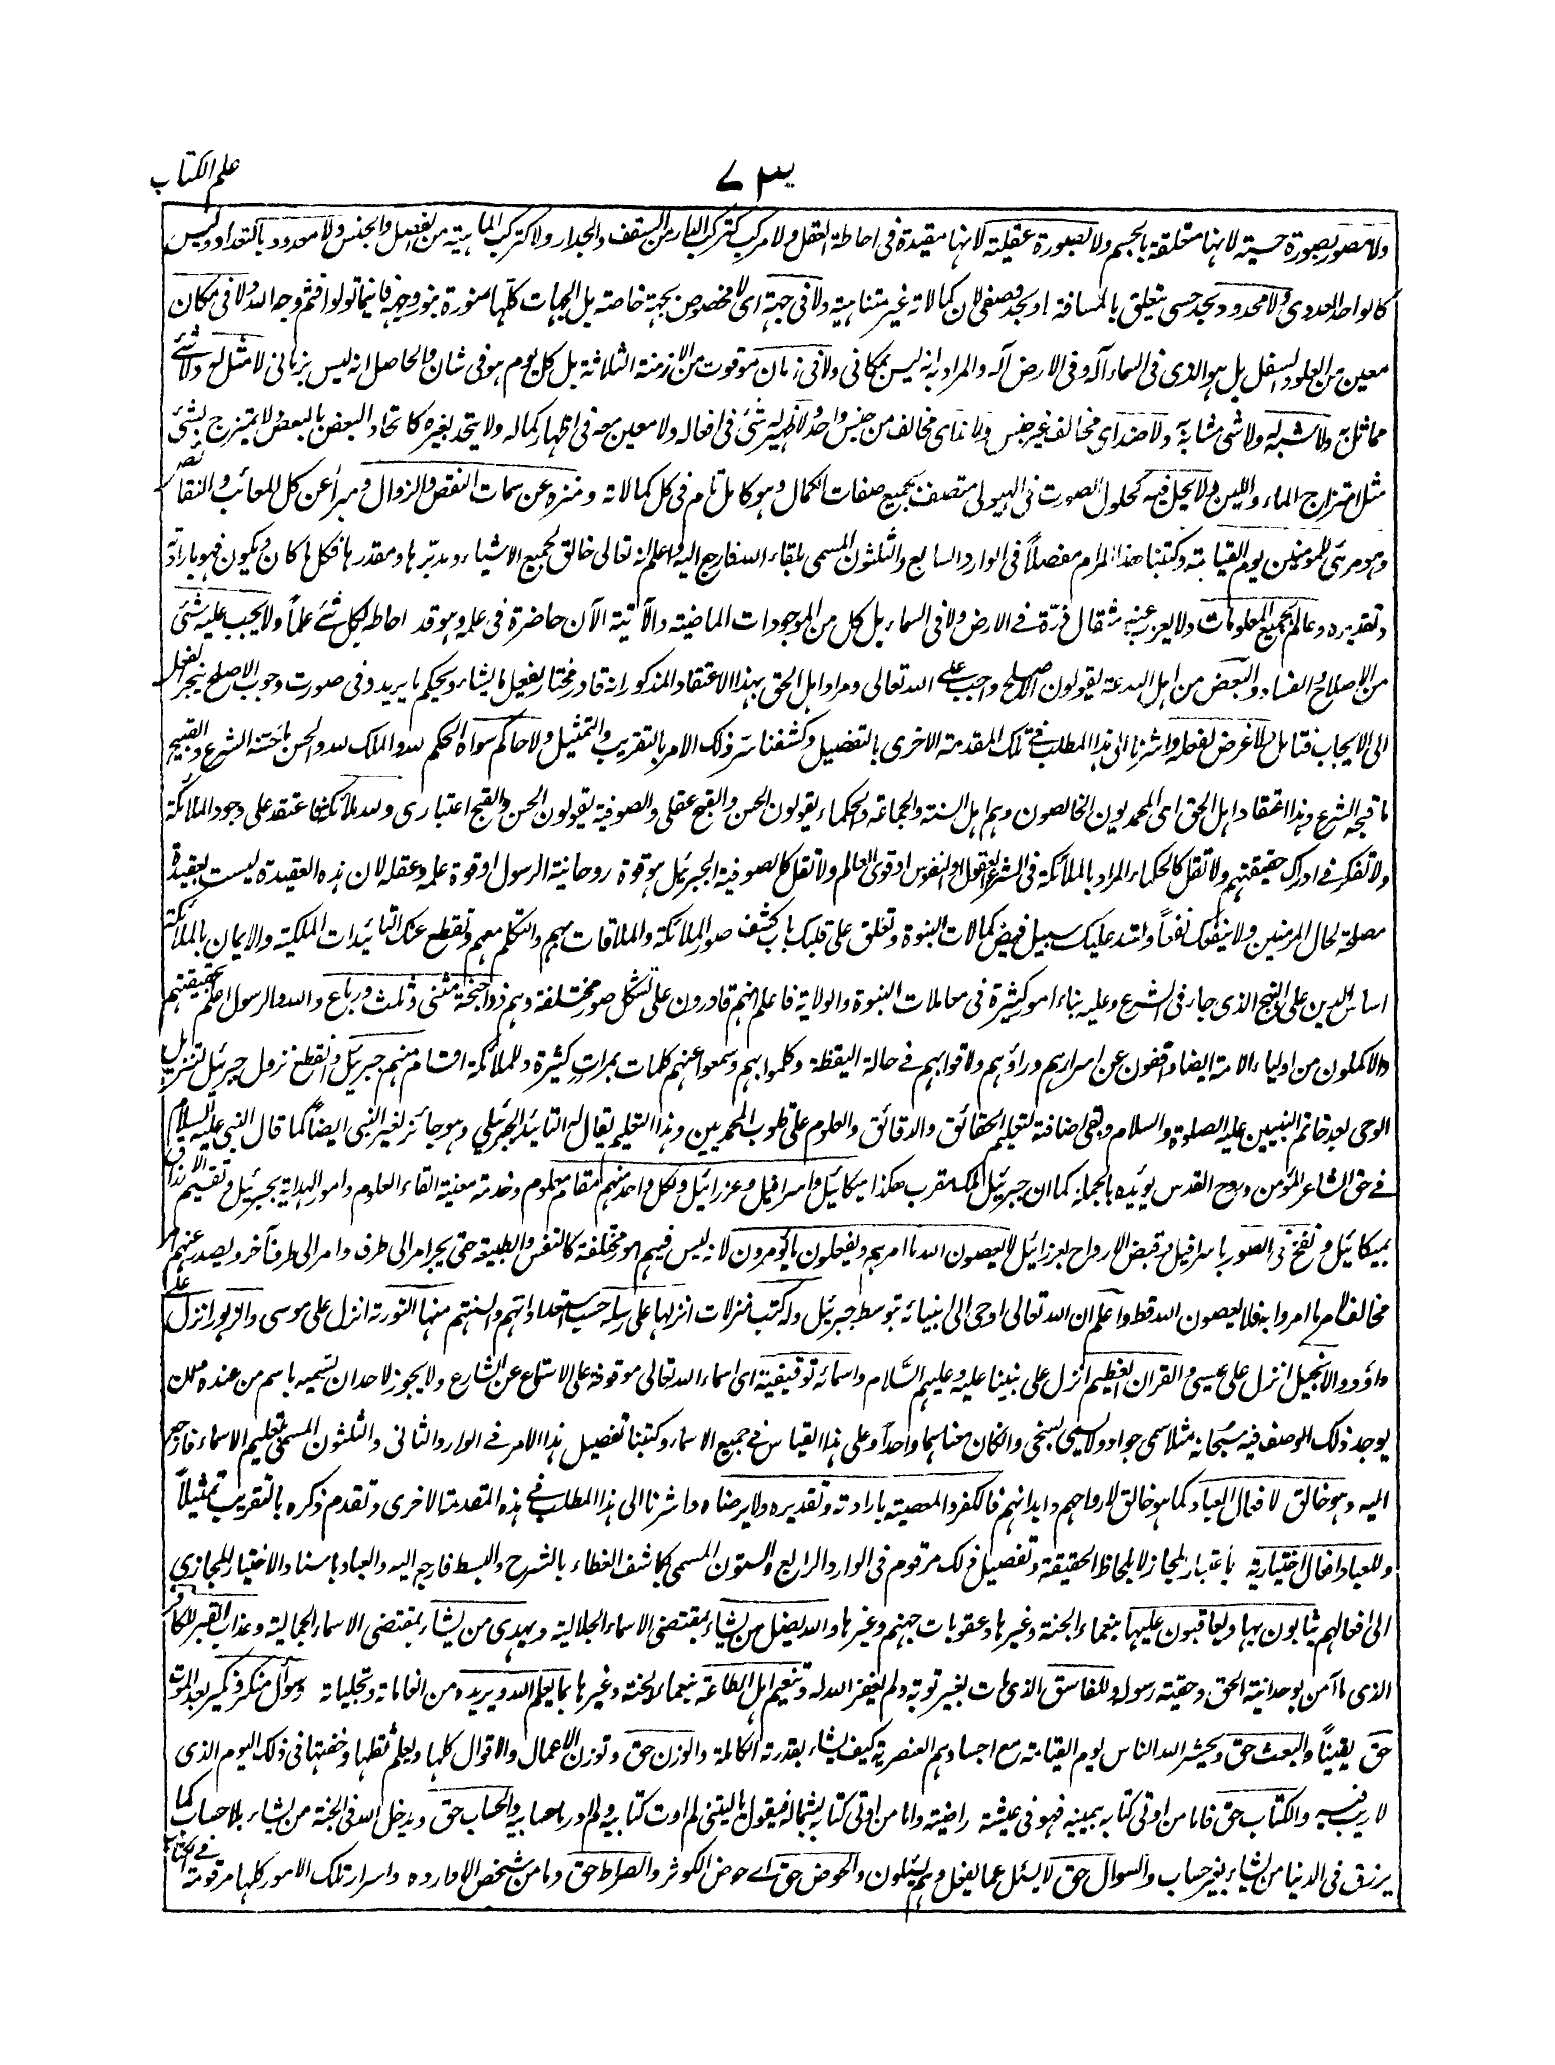 علم الکتاب
۷۳
ولا مصور بصورة حسیة لانها متعلقة بالجسم ولا بصورة عقلیة لانها مقیدة فی احاطة العقل ولا مرکب کترکب الدار من السقف والجدار ولا کترکب الماهیة من الفصل والجنس ولا معدود بالتعداد ولیس
کالواحد العددی ولا محدود بحد حسی یتعلق بالمسافة او بحد وصفی لان کمالاته غیر متناهیة ولا فی جهة ای لا مخصوص بجهة خاصة بل الجهات کلها منورة بنور وجهه فاینما تولوا فثم وجه الله ولا فی مکان
معین من العلو والسفل بل هو الذی فی السماء آله وفی الارض آله والمراد به انه لیس بمکانی ولا فی زمان موقوت من الازمنة الثلاثة بل کل یوم هو فی شان والحاصل انه لیس بزمانی لا مثل له ولا شئ
مماثل به ولا شبه له ولا شئ مشابه به ولا ضد ای مخالف غیر جنس ولا ند ای مخالف من جنس واحد ولا ظهیر له شئ فی افعاله ولا معین معه فی اظهار کماله ولا یتحد بغیره کاتحاد البعض بالبعض ولا یمتزج بشئ
مثل امتزاج الماء واللبن ولا یحل فیه کحلول الصورت فی الهیولی متصف بجمیع صفات الکمال وهو کامل تام فی کل کمالاته ومنزه عن سمات النقص والزوال ومبرأ عن کل المعائب والنقائص
وهو مرئی للمومنین یوم القیامة وکتبنا هذا المرام مفصلاً فی الوارد السابع والثلثون المسمی بلقاء الله فارجع الیه واعلم انه تعالی خالق لجمیع الاشیاء ومدبرها ومقدرها فکل ما کان ویکون فهو بارادته
وتقدیره وعالم بجمیع المعلومات ولا یعزب عنه مثقال ذرة فی الارض ولا فی السماء بل کل من الموجودات الماضیة والآتیة الآن حاضرة فی علمه وهو قد احاط بکل شئ علماً ولا یجب علیه شئ
من الاصلاح والفساد والبعض من اهل البدعة یقولون الاصلح واجب علی الله تعالی ومراد اهل الحق بهذا الاعتقاد المذکور انه قادر مختار یفعل ما یشاء ویحکم ما یرید وفی صورت وجوب الاصلح ینجر الفعل
الی الایجاب فتامل ولا غرض لفعله واشرنا الی هذا المطلب فی تلک المقدمة الاخری بالتفصیل وکشفنا سر ذلک الامر بالتقریب والتمثیل ولا حاکم سواه الحکم لله والملک لله والحسن ما حسنه الشرع والقبیح
ما قبحه الشرع وهذا اعتقاد اهل الحق ای المحمدیون الخالصون وهم اهل السنة والجماعة والحکماء یقولون الحسن والقبح عقلی والصوفیة یقولون الحسن والقبح اعتباری ولله ملائکة فاعتقد علی وجود الملائکة
ولا تفکر فی ادراک حقیقتهم ولا تقل کالحکماء المراد بالملائکة فی الشرع العقول والنفوس او قوی العالم ولا تقل کالصوفیة الجبرئیل هو قوة روحانیة الرسول او قوة علمه وعقله لان هذه العقیدة لیست بعقیدة
مصلحة لحال المومنین ولا ینفعک نفعاً واشد علیک سبیل فیض کمالات النبوة وتغلق علی قلبک باب کشف صور الملائکة والملاقات بهم والتکلم معهم وتقطع عنک التائیدات الملکیة والایمان بالملائکة
اساس الدین علی النهج الذی جاء فی الشرع وعلیه بناء امور کثیرة فی معاملات النبوة والولایة فاعلم انهم قادرون علی تشکل صور مختلفة وهم ذوا اجنحة مثنی وثلث ورباع والله والرسول اعلم بحقیقتهم
والاکملون من اولیاء الامة ایضا واقفون عن اسرارهم ورأوهم ولاقوا بهم فی حالة الیقظة وکلموا بهم وسمعوا عنهم کلمات بمرات کثیرة وللملائکة اقسام منهم جبرئیل وانقطع نزول جبرئیل لتنزیل
الوحی بعد خاتم النبیین علیه الصلوة والسلام وبقی اضافته لتعلیم الحقائق والدقائق والعلوم علی قلوب المحمدیین وهذا التعلیم یقال له التائید الجبرئیلی وهو جائز لغیر النبی ایضاً کما قال النبی علیه السلام
فی حق الشاعر المؤمن وروح القدس یؤیده بالجملة کما ان جبرئیل الملک مقرب هکذا میکائیل واسرافیل وعزرائیل ولکل واحد منهم مقام معلوم وخدمة معینة القاء العلوم وامور الهدایة بجبرئیل وتقسیم الارزاق
بمیکائیل ونفخ فی الصور باسرافیل وقبض الارواح بعزرائیل لا یعصون الله ما امرهم ویفعلون ما یؤمرون لانه لیس فیهم امور مختلفة کالنفس والطبیعة حتی یجر امر الی طرف وامر الی طرف آخر ویصدر عنهم امر
مخالف لامر ما امروا به فلا یعصون الله قط واعلم ان الله تعالی اوحی الی انبیائه بتوسط جبرئیل وله کتب منزلات انزلها علی رسله حسب استعداداتهم والسنتهم منها التورة انزل علی موسی والزبور انزل علی
داؤد والانجیل انزل علی عیسی والقران العظیم انزل علی نبینا علیه وعلیهم السلام واسمائه توقیفیة ای اسماء الله تعالی موقوفة علی الاستماع عن الشارع ولا یجوز لاحد ان یسمیه باسم من عنده ممن
یوجد ذلک الوصف فیه سبحانه مثلا سمی جواد ولا یسمی بسخی والکان معناهما واحداً وعلی هذا القیاس فی جمیع الاسماء وکتبنا تفصیل هذا الامر فی الوارد الثانی والثلثون المسمی بتعلیم الاسماء فارجع
الیه وهو خالق لافعال العباد کما هو خالق لارواحهم وابدانهم فالکفر والمعصیة بارادته وتقدیره ولا برضاه واشرنا الی هذا المطلب فی هذه المقدمة الاخری وتقدم ذکره بالتقریب تمثیلاً
وللعباد افعال اختیاریة باعتبار المجاز لا بلحاظ الحقیقة وتفصیل ذلک مرقوم فی الوارد الرابع والستون المسمی بکاشف الغطاء بالشرح والبسط فارجع الیه والعباد باسناد الاختیار المجازی
الی افعالهم یثابون بها ویعاقبون علیها بنعماء الجنة وغیرها وعقوبات جهنم وغیرها والله یضل من یشاء بمقتضی الاسماء الجلالیة ویهدی من یشاء بمقتضی الاسماء الجمالیة وعذاب القبر للکافر
الذی ما آمن بوحدانیة الحق وحقیة رسوله وللفاسق الذی مات بغیر توبة ولم یغفر الله له وتنعیم اهل الطاعة بنعیم الجنة وغیرها بما یعلم الله ویریده من انعاماته وتجلیاته وسؤال منکر ونکیر بعد الموت
حق یقیناً والبعث حق ویحشر الله الناس یوم القیامة مع اجسادهم العنصریة کیف یشاء بقدرته الکاملة والوزن حق وتوزن الاعمال والاقوال کلها ویعلم ثقلها وخفتها فی ذلک الیوم الذی
لا ریب فیه والکتاب حق فاما من اوتی کتابه بیمینه فهو فی عیشة راضیة واما من اوتی کتابه بشماله فیقول یالیتنی لم اوت کتابیه ولم ادر ما حسابیه والحساب حق ویدخل الله فی الجنة من یشاء بلا حساب کما
یرزق فی الدنیا من یشاء بغیر حساب والسوال حق لا یسئل عما یفعل وهم یسئلون والحوض حق ای حوض الکوثر والصراط حق وما من شخص الا وارده واسرار تلک الامور کلها مرقومة فی الکتاب